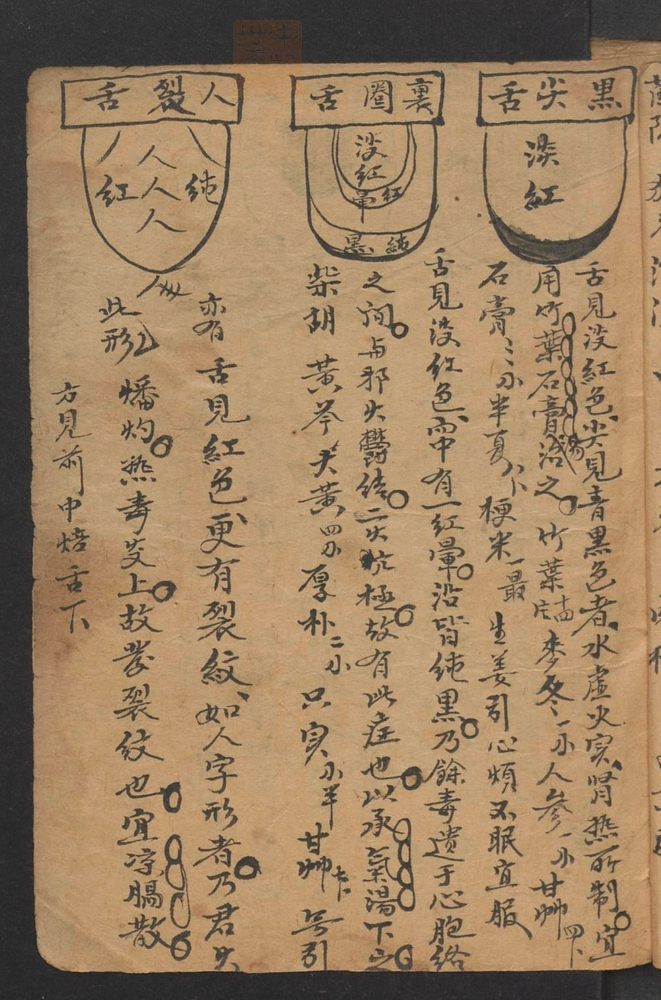 黑尖舌
淡紅
舌見淡紅色、尖見青黑色者、水虛火实、肾热所制。宜
用竹葉石膏湯治之。竹葉 麥冬 人參 甘艸
石膏 半夏 梗米一最 生姜引心煩不眠宜服
裏圈舌
淡紅
紅暈
純黑
舌見淡紅色、而中有一紅暈。沿皆純黑。乃餘毒遗于心胞絡
之间。与邪火鬱结。二火炕極。故有此症也。以承氣湯下之。
柴胡 黃芩 大黃 厚朴 只实 甘艸 引
人裂舌
純紅
人人人
亦有舌見紅色、更有裂紋、如人字形者。乃君火
此形
燔灼。热毒炎上。故发裂紋也。宜凉膈散。
方見前中焙舌下